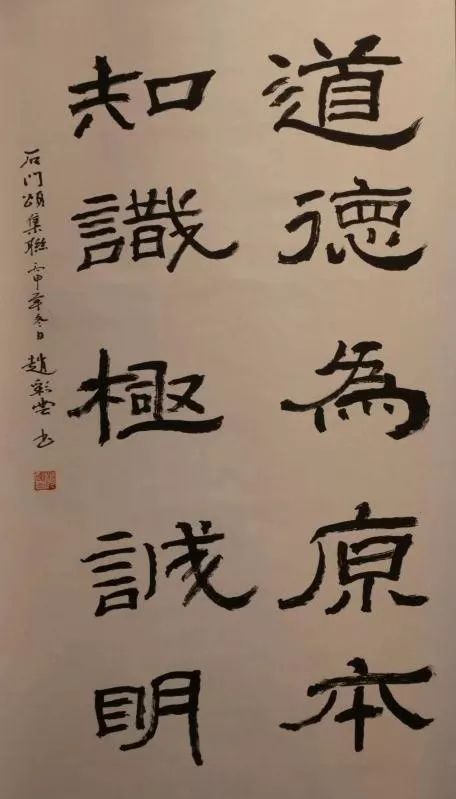 道德為原本
知識極誠明
石门頌集聯丙申年冬日趙彩雲书